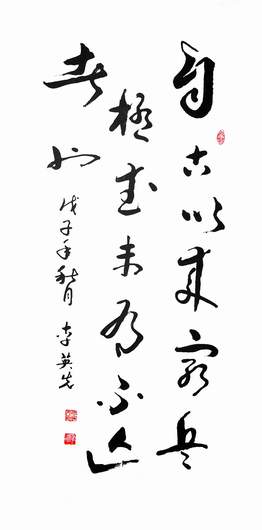 自古以来穷兵
极武未有不亡
者也
戊子年秋月李英杰